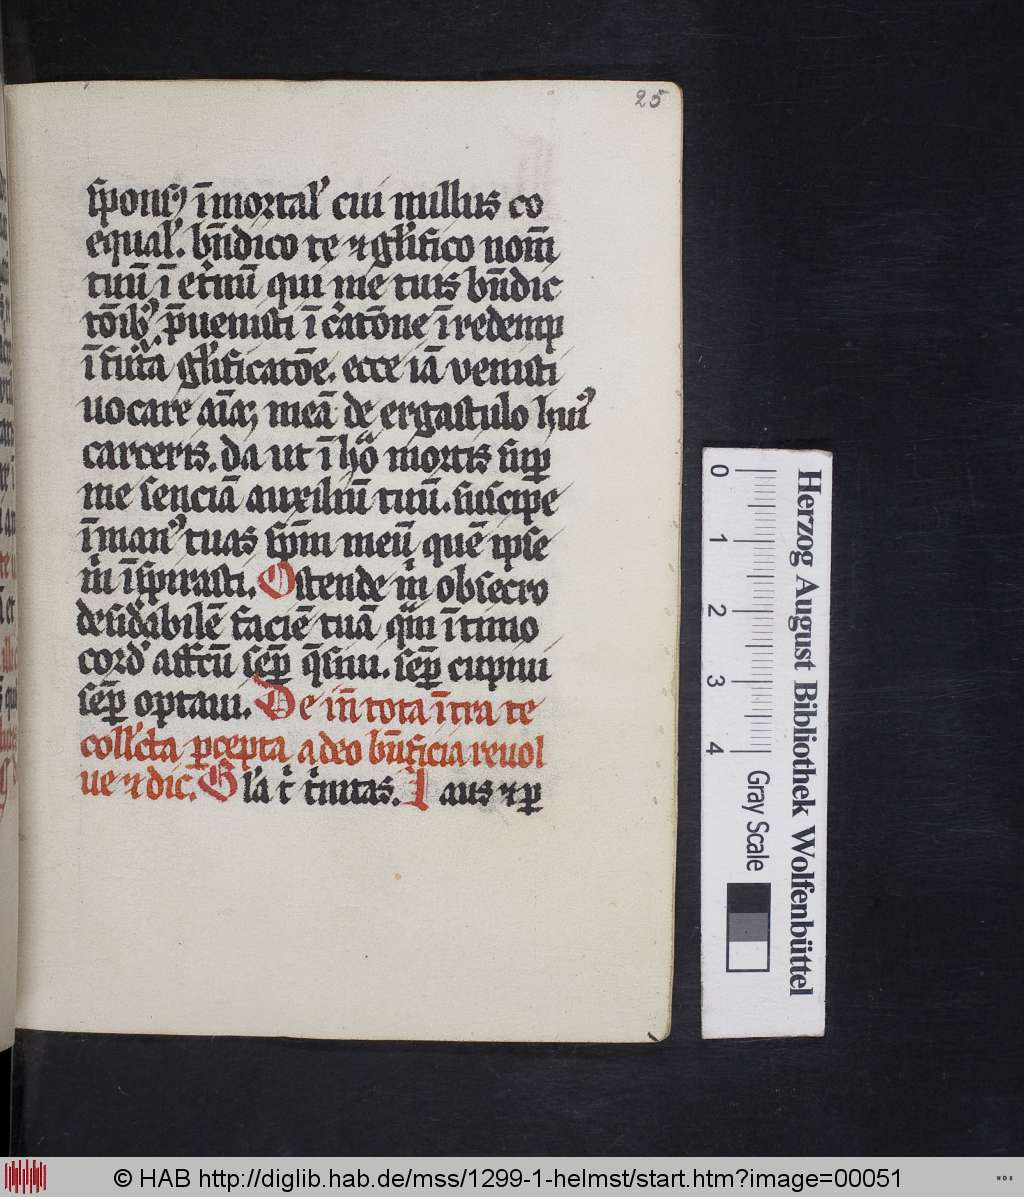 25
sponsꝰ īmortał cui nullus co
equał. bn̄dico te ⁊ glīfico nom̄
tuū ī et̄nū qui me tuis bn̄dic
tōibꝰ p̄uenisti ī c̄atōne ī redemp
ī futā glīficatōe. ecce iā venisti
uocare aīaꝫ meā de ergastulo huiꝰ
carceris. da ut ī hō mortis suꝑ
me senciā auxiliū tuū. suscipe
ī manꝰ tuas sp̄m meū quē ipse
m̄ īspirasti. Ostende m̄ obsecro
desidabilē faciē tuā qͣm ītimo
cord affctū semꝑ q̄siui. semꝑ cupiui
semꝑ optaui. De īn tota īt̄ra te
collēcta ꝑcepta a deo bn̄ficia reuol
ue ⁊ dic. Gl̄a t t̄nitas. Laus ⁊ ꝑ
0 1 2 3 4
Herzog August Bibliothek Wolfenbüttel
Gray Scale
© HAB http://diglib.hab.de/mss/1299-1-helmst/start.htm?image=00051